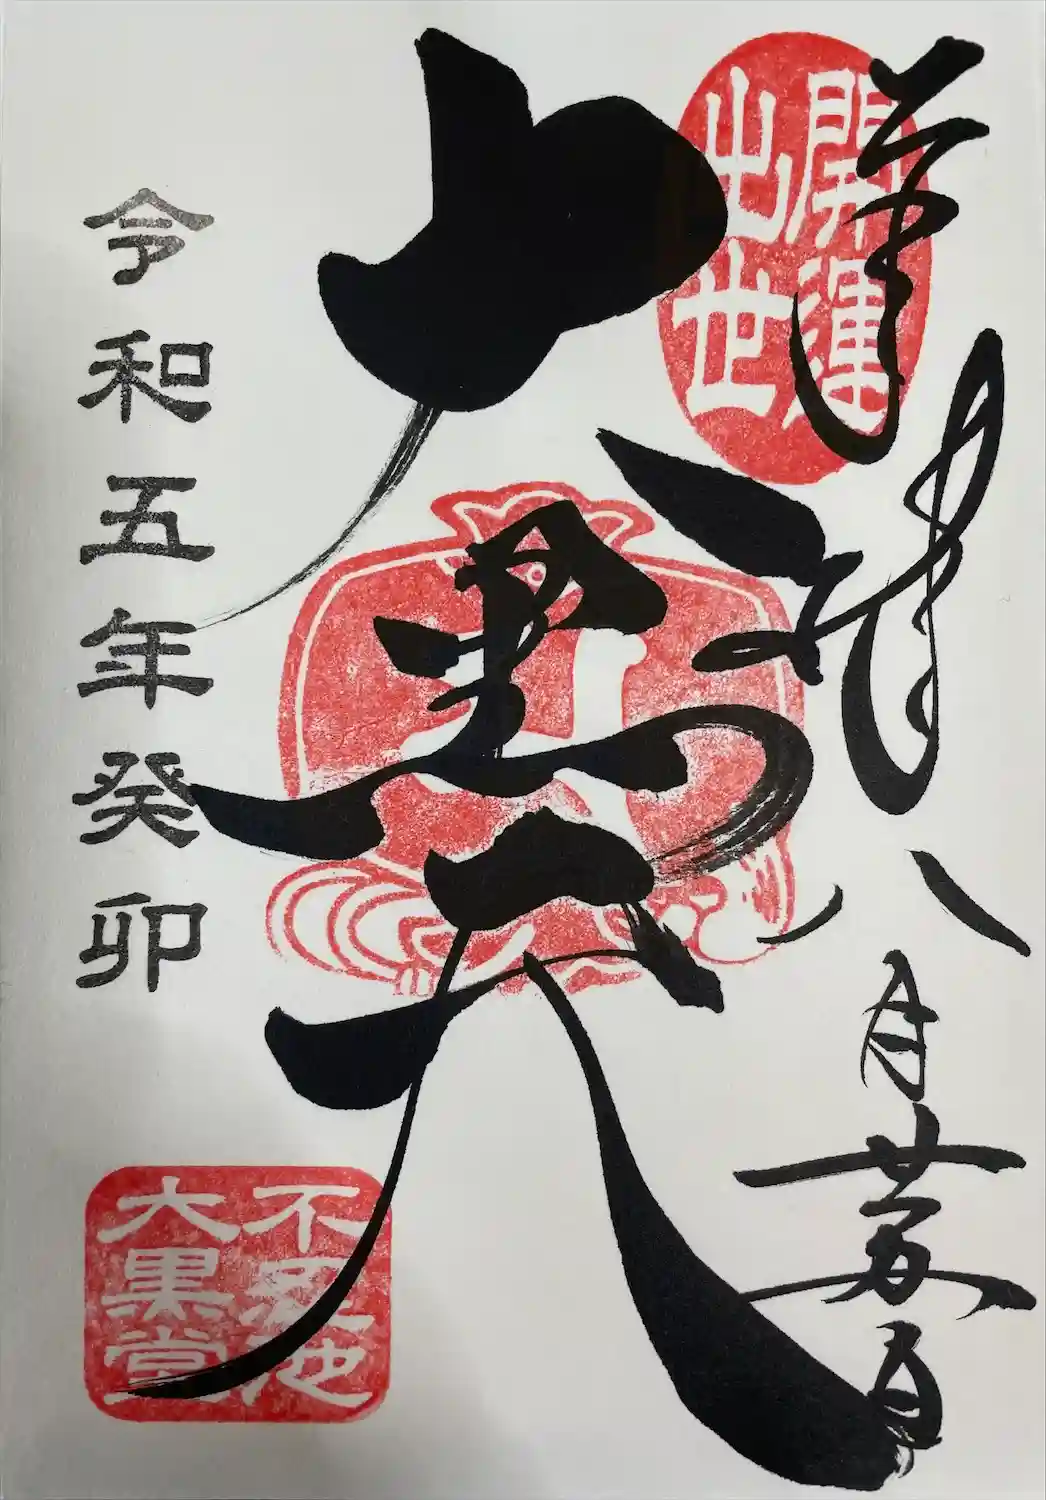 奉拝 八月廿五日
開運
出世
大黒天
令和五年癸卯
不忍池
大黒堂